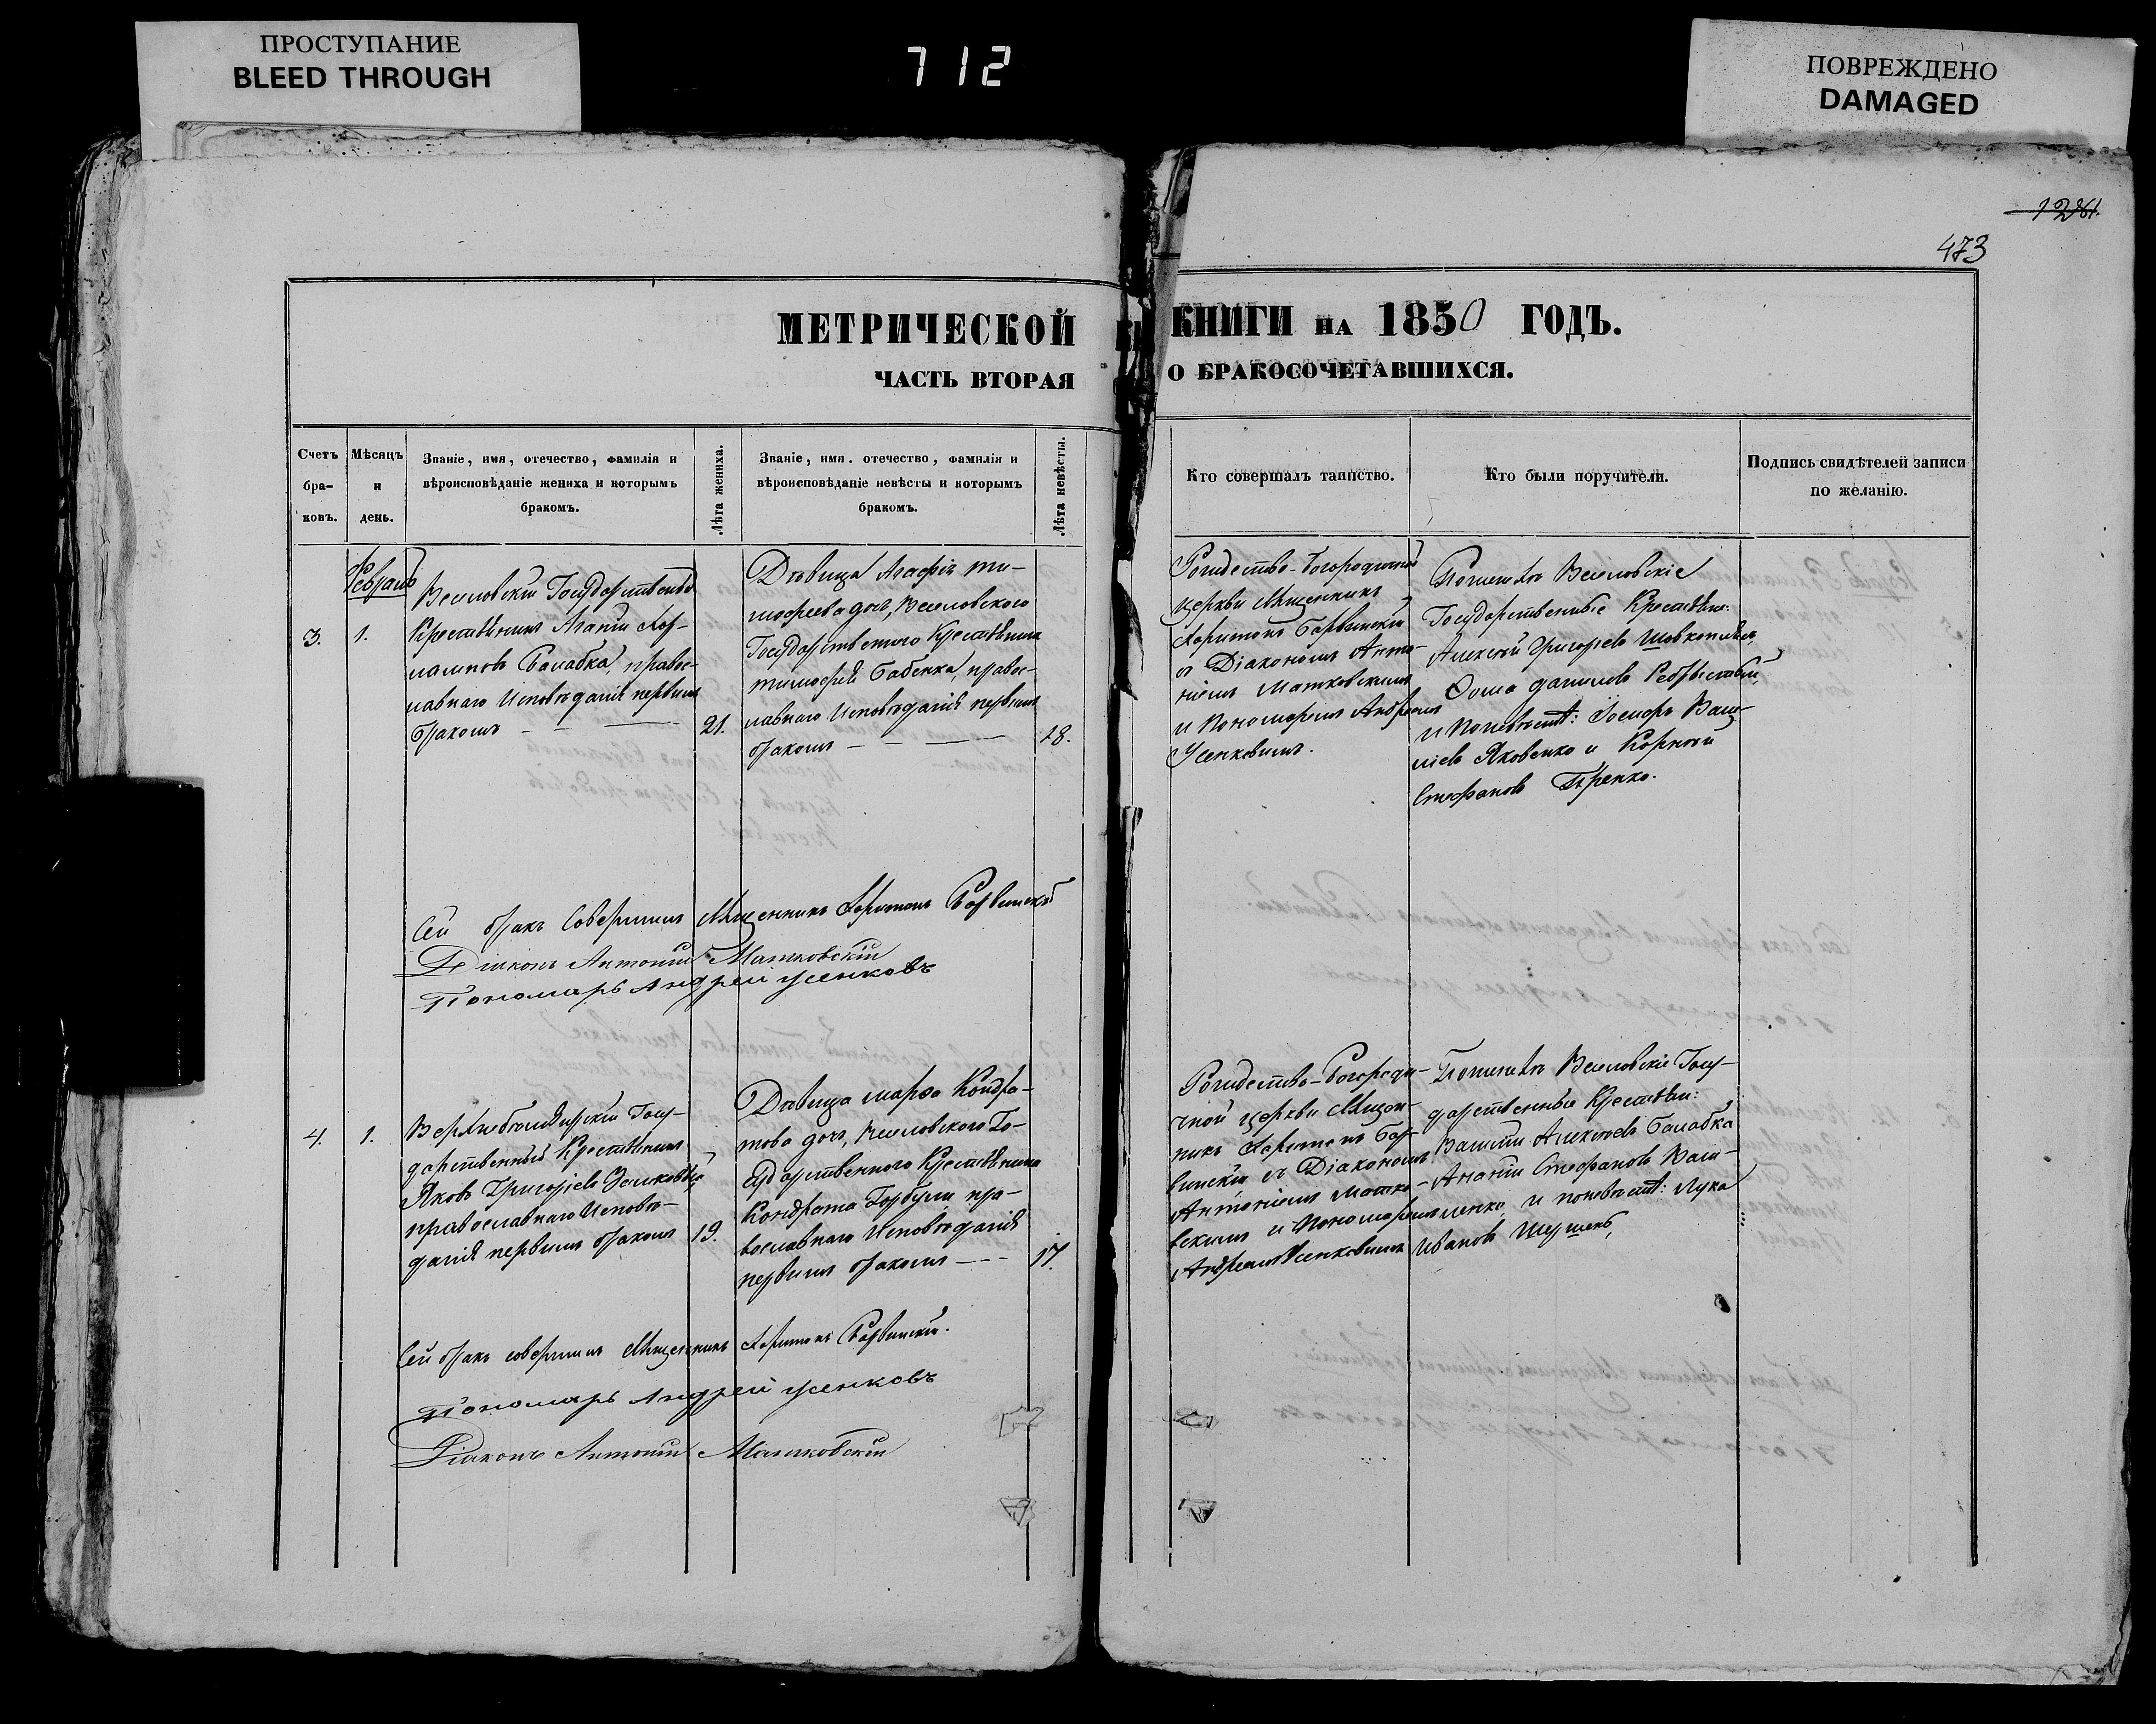 ПРОСТУПАНИЕ
BLEED THROUGH
712
ПОВРЕЖДЕНО
DAMAGED
1281.
473
МЕТРИЧЕСКОЙ КНИГИ НА 1850 ГОДЪ.
ЧАСТЬ ВТОРАЯ О БРАКОСОЧЕТАВШИХСЯ.
Счетъ бра-ковъ.
Мѣсяцъ и день.
Званіе, имя, отечество, фамилія и
вѣроисповѣданіе жениха и которымъ
бракомъ.
Лѣта жениха.
Званіе, имя. отечество, фамилія и
вѣроисповѣданіе невѣсты и которымъ
бракомъ.
Лѣта невѣсты.
Кто совершалъ таинство.
Кто были поручители.
Подпись свидѣтелей записи
по желанію.
Февраль
3.
1.
Веселовскій Государственный
Крестьянинъ Агапій Хар-
лампіевъ Балабка, правос-
лавнаго Исповѣданія первымъ
бракомъ
21.
Дѣвица Агафія Ти-
мофеева доч, Веселовского
Государственного Крестьянина
Тимофея Бабенка, правос-
лавнаго Исповѣданія первымъ
бракомъ
18.
Рождество-Богородичной
церкви Священникъ
Харитонъ Барвинскій
съ Діакономъ Анто-
ніемъ Матковскимъ
и Пономаремъ Андреемъ
Усенковимъ.
По женихѣ Веселовскіе
Государственные Крестьяне:
Алексей Григорьевъ
Фома Данилевъ
и По невѣстѣ: Іосифъ Васи-
ліевъ Яковенко и Корней
Стефановъ
Сей бракъ Совершилъ Священникъ Харитонъ Барвинскій
Діаконъ Антоній Матковскій
Пономарь Андрей Усенковъ
4.
1.
Госу-
дарственный Крестьянинъ
Яковъ Григоріевъ
православнаго Исповѣ-
данія первымъ бракомъ
19.
Дѣвица Марѳа Кондра-
това доч, Веселовского Го-
сударственного Крестьянина
Кондрата Горбули пра-
вославнаго Исповѣданія
первимъ бракомъ
17.
Рождество-Богороди-
чной церкви Священ-
никъ Харитонъ Бар-
винскій съ Діакономъ
Антоніемъ Матко-
вскимъ и Пономаремъ
Андреемъ Усенковимъ
По женихѣ Веселовскіе Госу-
дарственные Крестьяне:
Василій Алексеевъ Балабка
Ананій Стефановъ Васи-
ленко, и по невѣстѣ: Лука
Ивановъ
Сей бракъ совершилъ Священникъ Харитонъ Барвинскій.
Пономарь Андрей Усенковъ
Діаконъ Антоній Матковскій